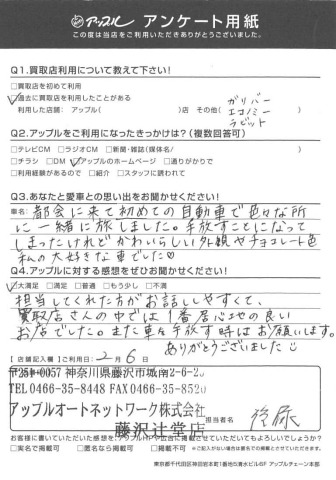 アップル アンケート用紙
この度は当店をご利用いただきありがとうございました。
Q1.買取店利用について教えて下さい!
□買取店を初めて利用
□過去に買取店を利用したことがある
利用した店舗: アップル( )店 その他( ガリバー
エコノミー
ラビット )
Q2.アップルをご利用になったきっかけは?(複数回答可)
□テレビCM □ラジオCM □新聞・雑誌(媒体名 )
□チラシ □DM □アップルのホームページ □通りがかりで
□利用経験があるので □紹介 □スタッフに誘われて
Q3.あなたと愛車との思い出をお聞かせください!
車名: 都会に来て初めての自動車で色々な所
に一緒に旅しました。手放すことになって
しまったけれどかわいらしい外観やチョコレート色
私の大好きな車でした♡
Q4.アップルに対する感想をぜひお聞かせください!
□大満足 □満足 □普通 □もう少し □不満
担当してくれた方がお話ししやすくて、
買取店さんの中では1番居心地の良い
お店でした。また車を手放す時はお願いします。
ありがとうございました☺
【店舗記入欄】ご利用日: 2月6日
〒251-0057 神奈川県藤沢市城南2-6-2
TEL0466-35-8448 FAX0466-35-8520
アップルオートネットワーク株式会社
藤沢辻堂店
担当者名
お客様に書いていただいた感想を、アップルHPや広告に掲載させていただいてもよろしいでしょうか?
□実名で掲載可 □匿名なら掲載可 □掲載不可 ※ご記入がない場合は匿名での掲載とさせていただきます。
東京都千代田区神田岩本町1番地5清水ビル6F アップルチェーン本部